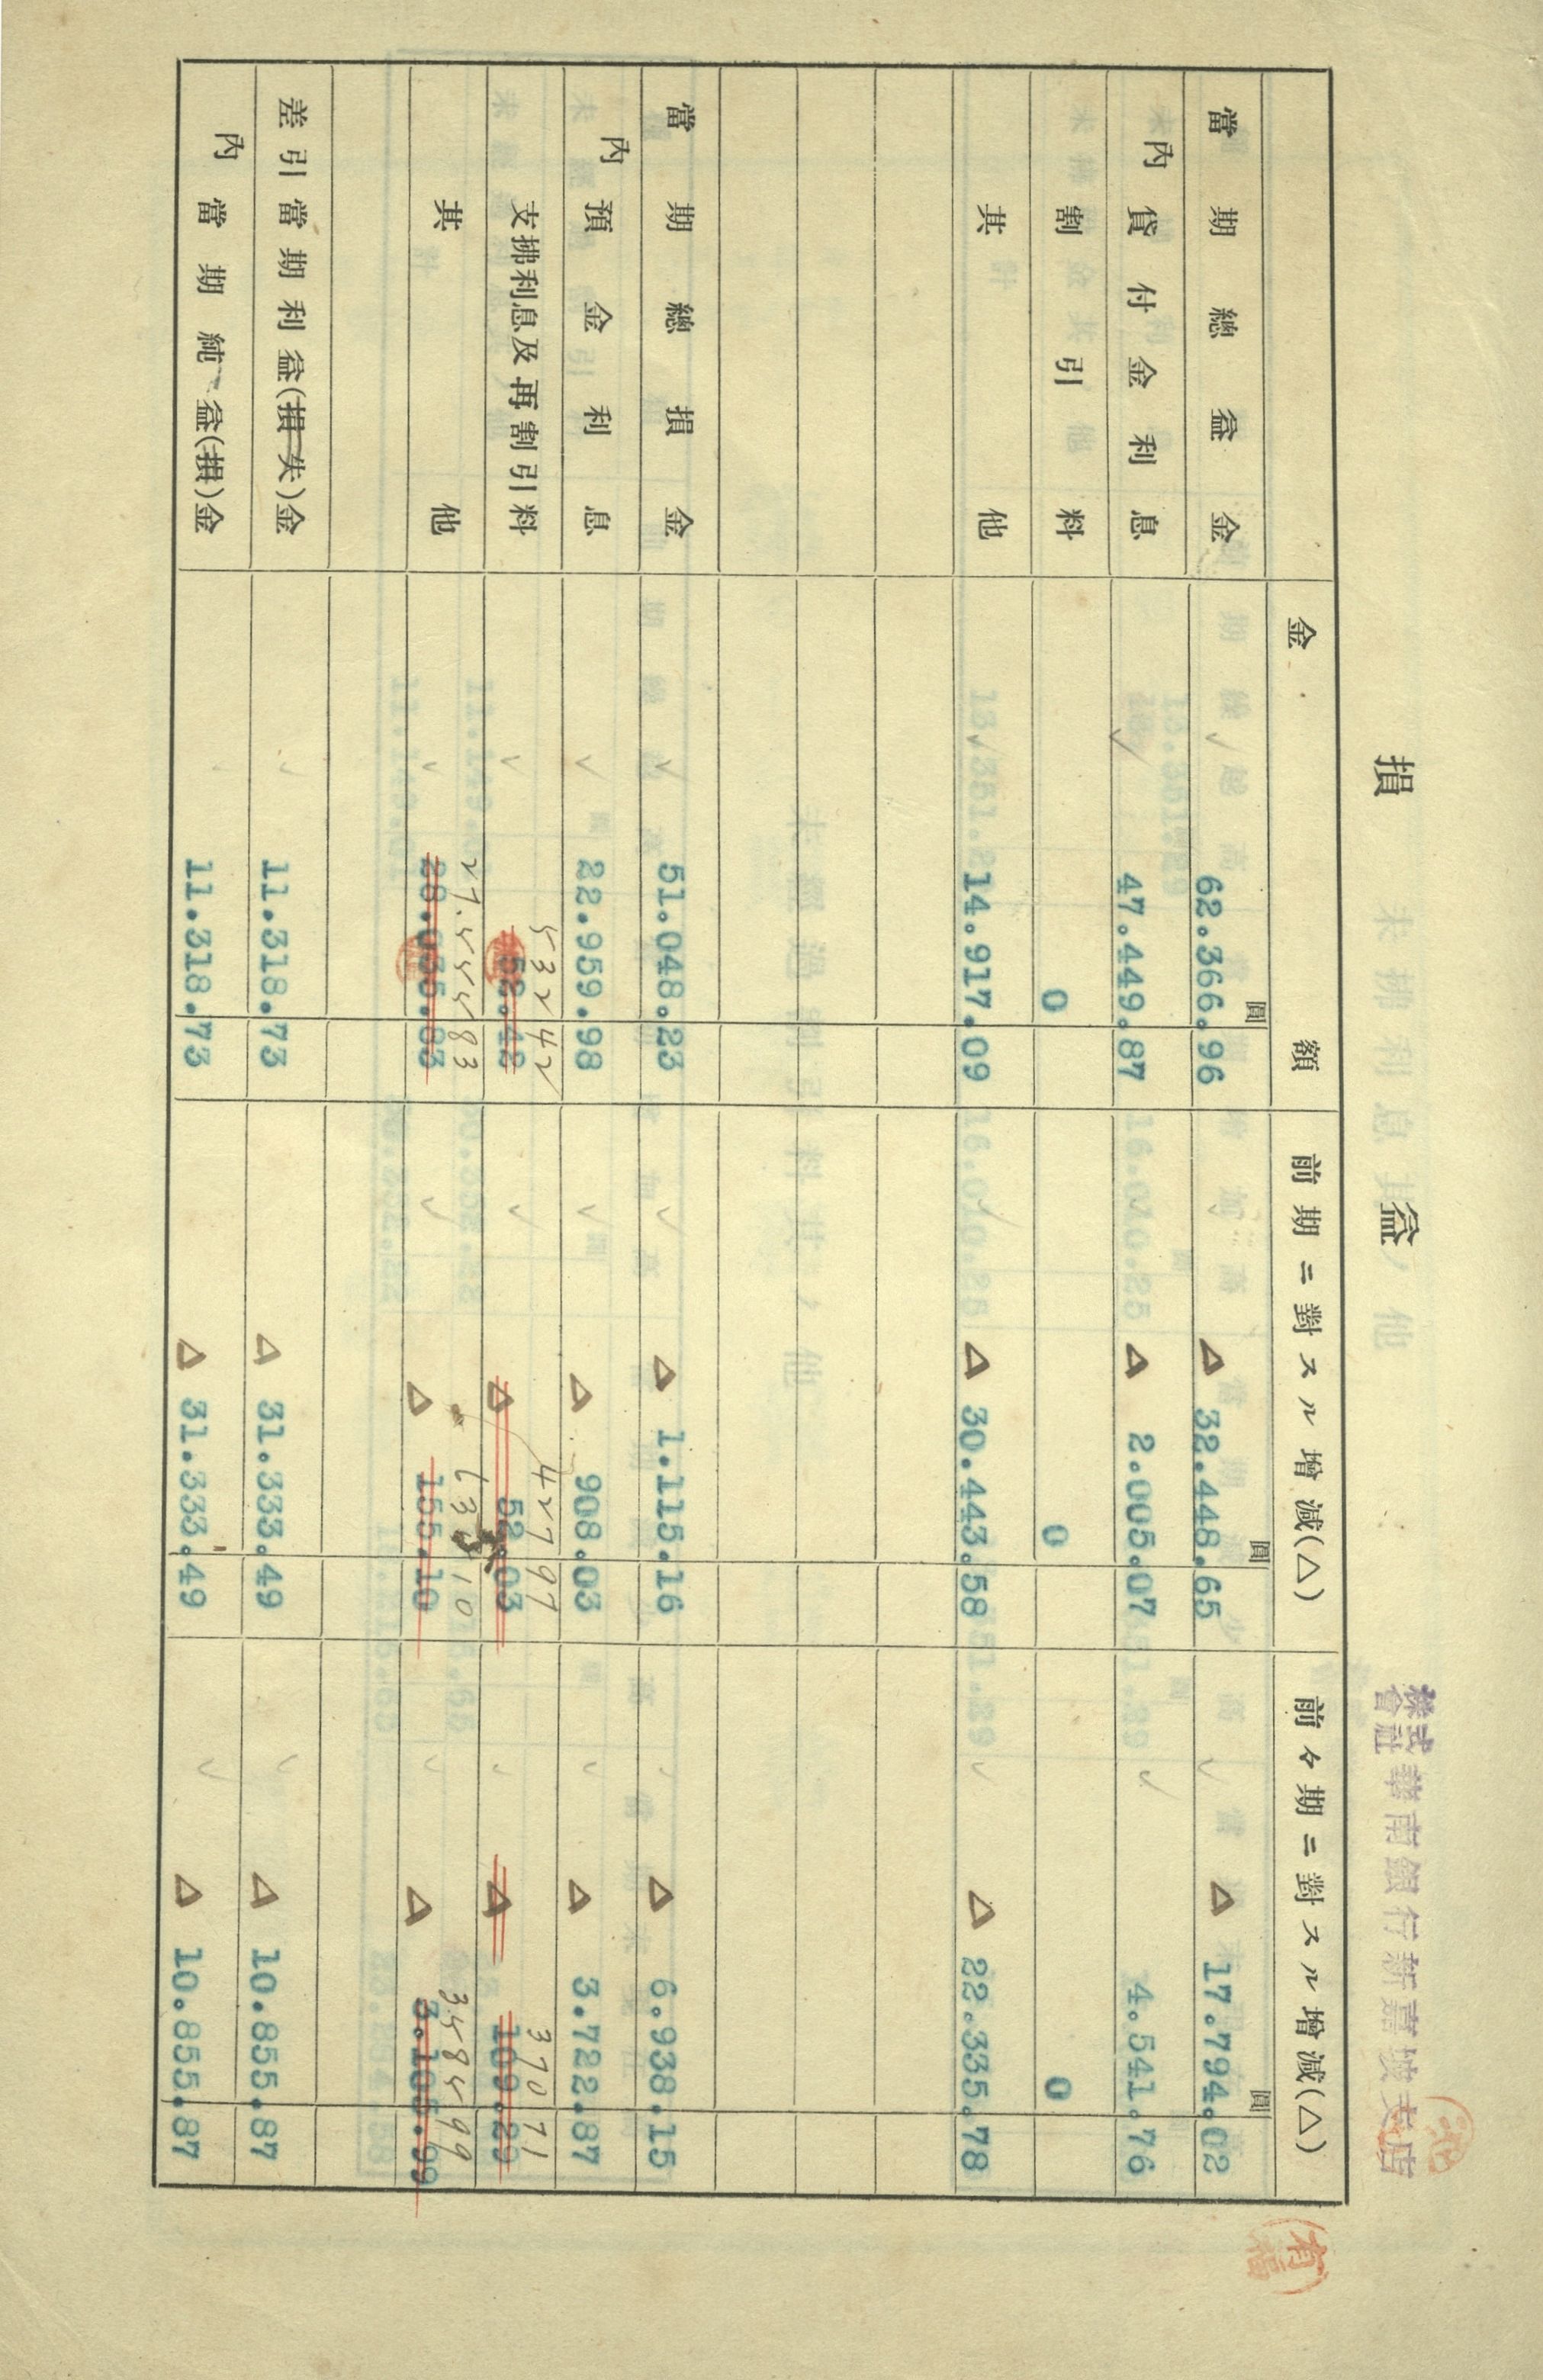 損 益
株式會社華南銀行新嘉坡支店
金 額 前期ニ對スル增減(△) 前々期ニ對スル增減(△)
圓 圓 圓
當期總益金 62.366.96 △ 32.448.65 △ 17.794.02
內 貸付金利息 47.449.87 △ 2.005.07 4.541.76
割引料 0 0 0
其他 14.917.09 △ 30.443.58 △ 22.335.78
當期總損金 51.048.23 △ 1.115.16 △ 6.938.15
內 預金利息 22.959.98 △ 908.03 △ 3.722.87
532 42 427 97 370 71
支拂利息及再割引料 52.42 △ 52.03 △ 109.29
27.555 83 635 10 3585 99
其他 28.035.83 △ 155.10 △ 3.105.99
差引當期利益(損失)金 11.318.73 △ 31.333.49 △ 10.855.87
內 當期純益(損)金 11.318.73 △ 31.333.49 △ 10.855.87